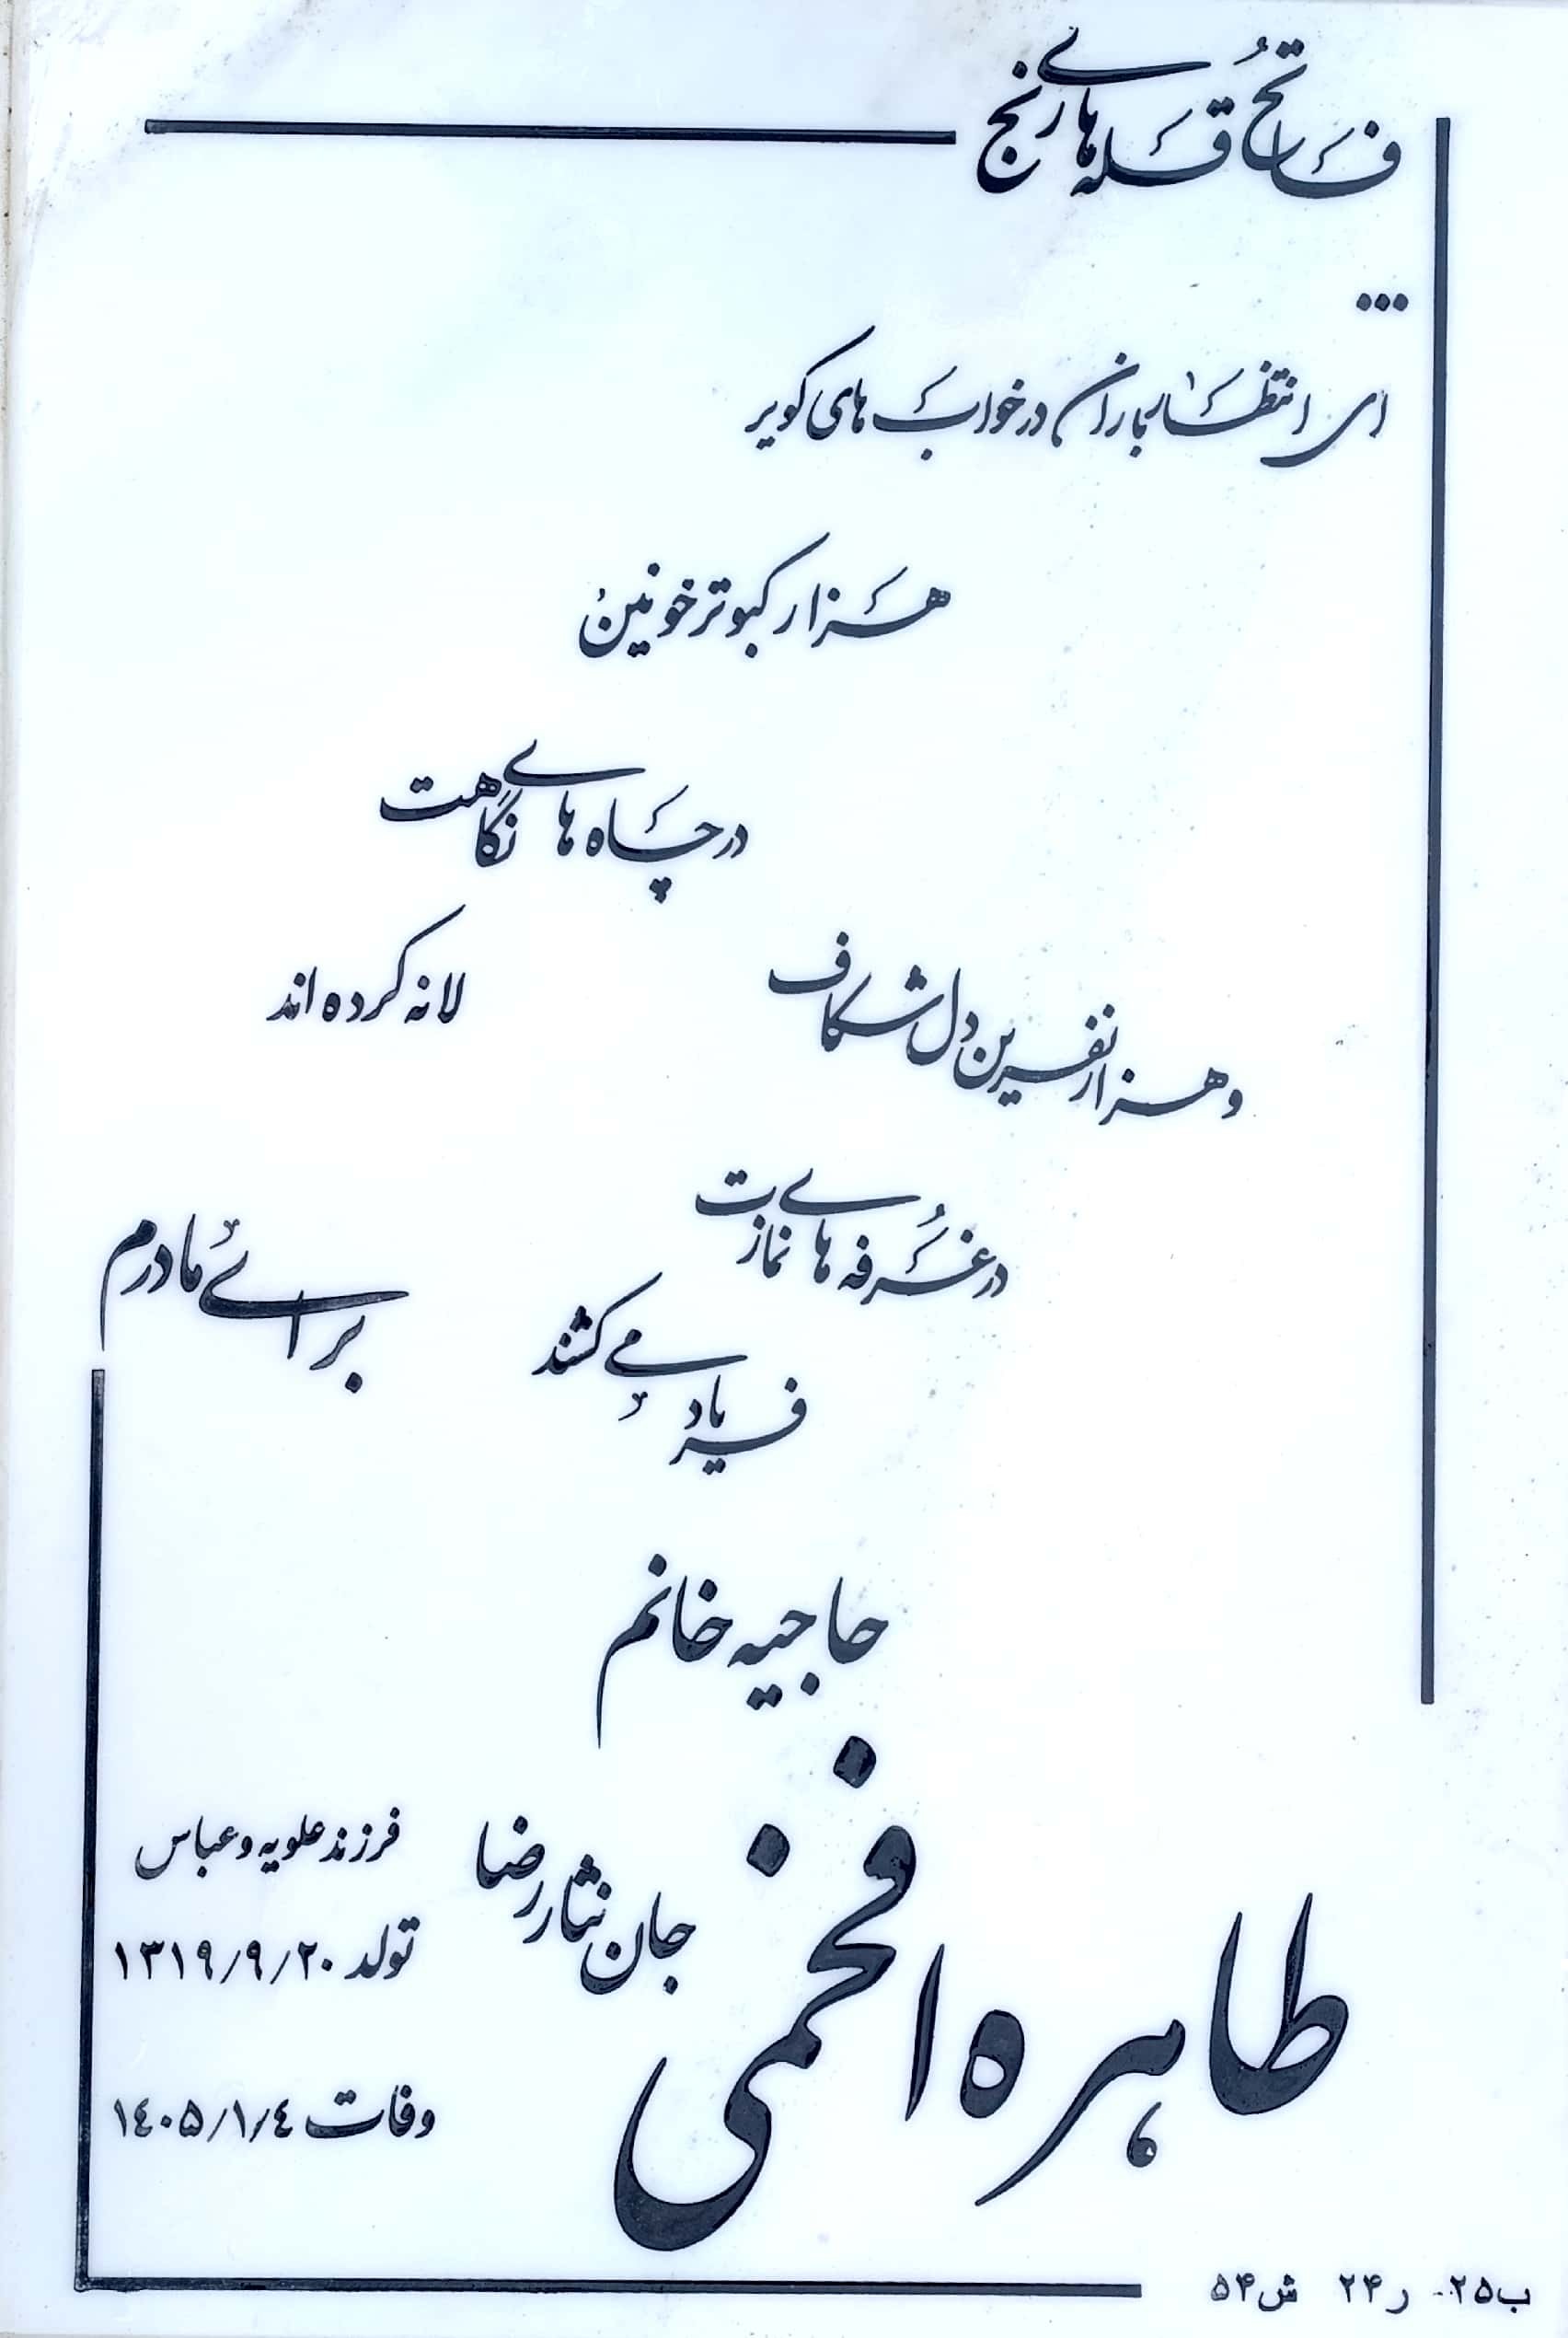 فاتح قله های رنج
...
ای انتظار باران در خواب های کویر
هزار کبوتر خونین
در چاه های نگاهت
لانه کرده اند
و هزار نفرین دل شکاف
در غرفه های نمازت
فریاد می کشند
برای مادرم
حاجیه خانم
طاهره افخمی
جان نثار رضا
فرزند علویه و عباس
تولد ۱۳۱۹/۹/۲۰
وفات ۱٤۰۵/۱/٤
ب۰۲۵ ر۲۴ ش۵۴